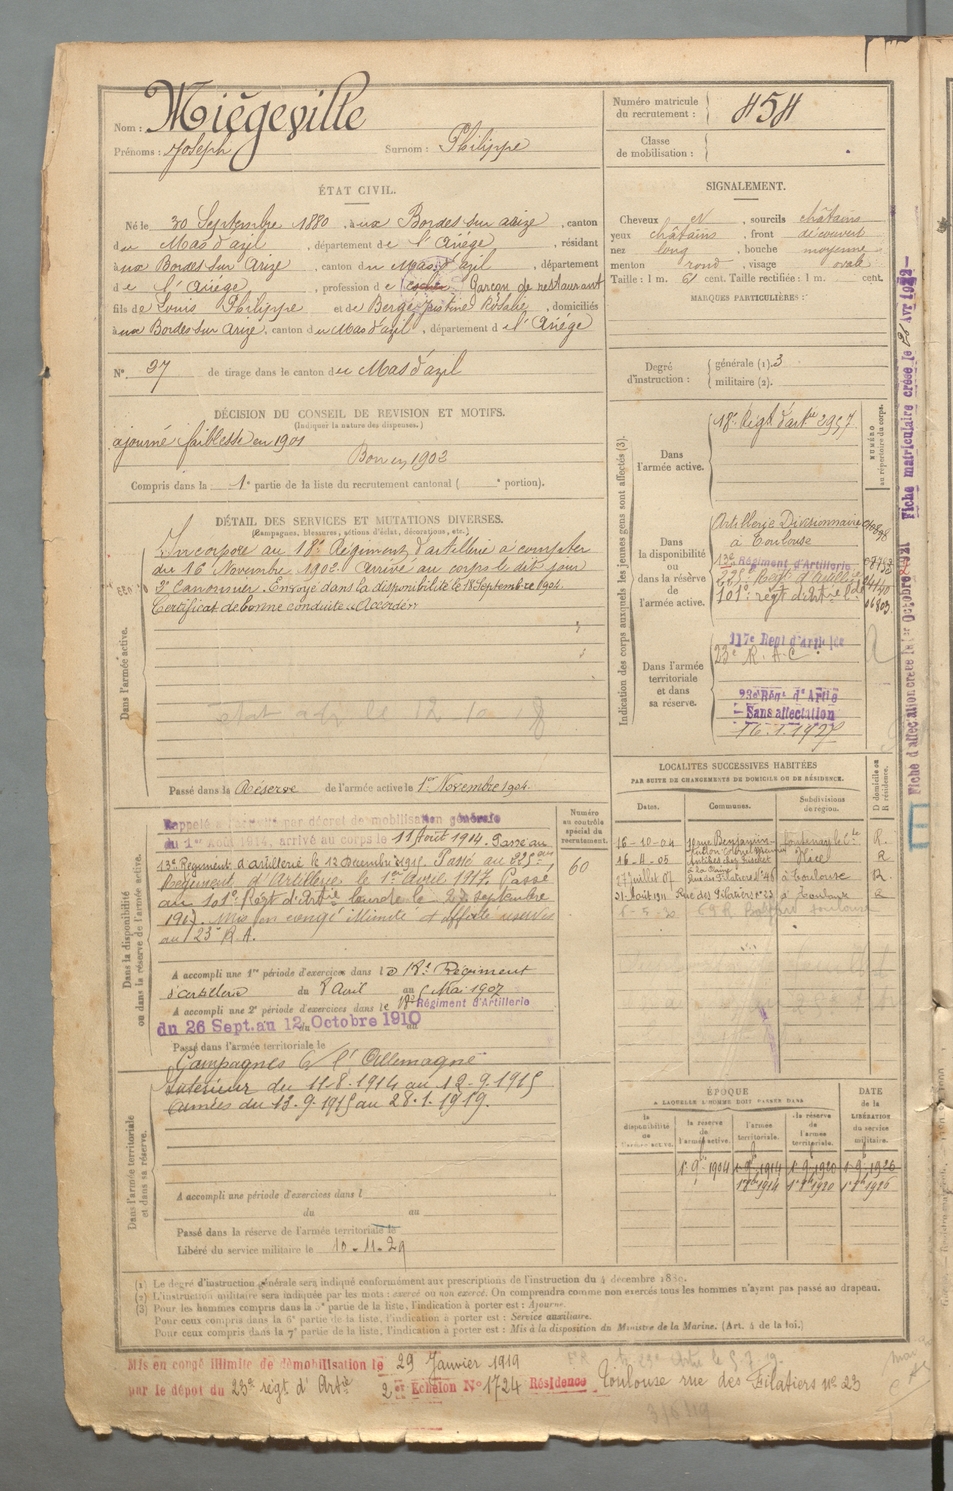 Nom : Miégeville
Prénoms : Joseph Surnom : Philippe
Numéro matricule du recrutement : 454
Classe de mobilisation :
ÉTAT CIVIL.
Né le 30 Septembre 1880, à aux Bordes sur arize, canton
du Mas d'azil, département de l'Ariège, résidant
à aux Bordes sur Arize, canton du Mas d'azil, département
de l'Ariège, profession de cocher Garçon de restaurant
fils de Louis Philippe et de Berge Justine Rosalie, domiciliés
à aux Bordes sur Arize, canton du Mas d'azil, département de l'Ariège
N° 27 de tirage dans le canton du Mas d'azil
SIGNALEMENT.
Cheveux N, sourcils châtains
yeux châtains, front découvert
nez long, bouche moyenne
menton rond, visage ovale
Taille : 1 m. 61 cent. Taille rectifiée : 1 m. cent.
MARQUES PARTICULIÈRES :
Degré d'instruction : générale (1). 3
militaire (2).
DÉCISION DU CONSEIL DE REVISION ET MOTIFS.
(Indiquer la nature des dispenses.)
ajourné faiblesse en 1901
Bon en 1902
Compris dans la 1e partie de la liste du recrutement cantonal ( e portion).
DÉTAIL DES SERVICES ET MUTATIONS DIVERSES.
(Campagnes, blessures, actions d'éclat, décorations, etc.)
Dans l'armée active.
Incorporé au 18e Régiment d'artillerie à compter
du 16 Novembre 1902. Arrivé au corps le dit jour
2e Canonnier. Envoyé dans la disponibilité le 18 Septembre 1904.
Certificat de bonne conduite "Accordé"
Passé dans la Réserve de l'armée active le 1er Novembre 1904.
Indication des corps auxquels les jeunes gens sont affectés (3).
NUMÉRO au répertoire du corps.
Dans l'armée active.
18e Régt d'artie 2957
Dans la disponibilité ou dans la réserve de l'armée active.
Artillerie Divisionnaire
à Toulouse
13e Régiment d'Artillerie
225e Régt d'Artillerie
101e régt d'Artie lde
Dans l'armée territoriale et dans sa réserve.
117e Regt d'Artillie
23e R.A.C.
23e Rég. d'Artie
Sans affectation
16.1.1927
Fiche d'affectation créée le 1er Octobre 1921
Fiche matriculaire créée le
LOCALITÉS SUCCESSIVES HABITÉES
PAR SUITE DE CHANGEMENTS DE DOMICILE OU DE RÉSIDENCE.
Dates. Communes. Subdivisions de région. D domicile ou R résidence.
16-10-04 R.
16-4-05 R
17 juillet 07 Rue des Filatiers 46 à Toulouse R.
31 Août 1911 Rue des Filatiers n° 23 à Toulouse R
Dans la disponibilité ou dans la réserve de l'armée active.
Numéro au contrôle spécial du recrutement.
60
Rappelé à l'activité par décret de mobilisation générale
du 1er Août 1914, arrivé au corps le 11 Août 1914. Passé au
13e Régiment d'artillerie le 12 Décembre 1915. Passé au 225eme
Régiment d'Artillerie le 1er Avril 1917. Passé
au 101e Régt d'Artie lourde le 22 septembre
1917. Mis en congé illimité et affecté réserves
au 23e R A.
A accompli une 1re période d'exercices dans le 18e Régiment
d'artillerie du 8 Avril au 5 Mai 1907
A accompli une 2e période d'exercices dans le 18e Régiment d'Artillerie
du 26 Sept. au 12 Octobre 1910
Passé dans l'armée territoriale le
Dans l'armée territoriale et dans sa réserve.
Campagnes c/ l'Allemagne
Intérieur du 11-8-1914 au 12-9-1915
Armées du 13-9-1915 au 28-1-1919.
A accompli une période d'exercices dans l
du au
Passé dans la réserve de l'armée territoriale le
Libéré du service militaire le 10-11-29
ÉPOQUE
A LAQUELLE L'HOMME DOIT PASSER DANS
la disponibilité de l'armée active. la réserve de l'armée active. l'armée territoriale. la réserve de l'armée territoriale. DATE de la LIBÉRATION du service militaire.
1er 9bre 1904 1er 9bre 1914 1er 9bre 1920 1er 9bre 1926
1er 8bre 1914 1er 8bre 1920 1er 8bre 1926
(1) Le degré d'instruction générale sera indiqué conformément aux prescriptions de l'instruction du 4 décembre 1889.
(2) L'instruction militaire sera indiquée par les mots : exercé ou non exercé. On comprendra comme non exercés tous les hommes n'ayant pas passé au drapeau.
(3) Pour les hommes compris dans la 5e partie de la liste, l'indication à porter est : Ajourné.
Pour ceux compris dans la 6e partie de la liste, l'indication à porter est : Service auxiliaire.
Pour ceux compris dans la 7e partie de la liste, l'indication à porter est : Mis à la disposition du Ministre de la Marine. (Art. 4 de la loi.)
Mis en congé illimité de démobilisation le 29 Janvier 1919
par le dépôt du 23e régt d'Artie 2e Echelon N° 1724 Résidence Toulouse rue des Filatiers n° 23